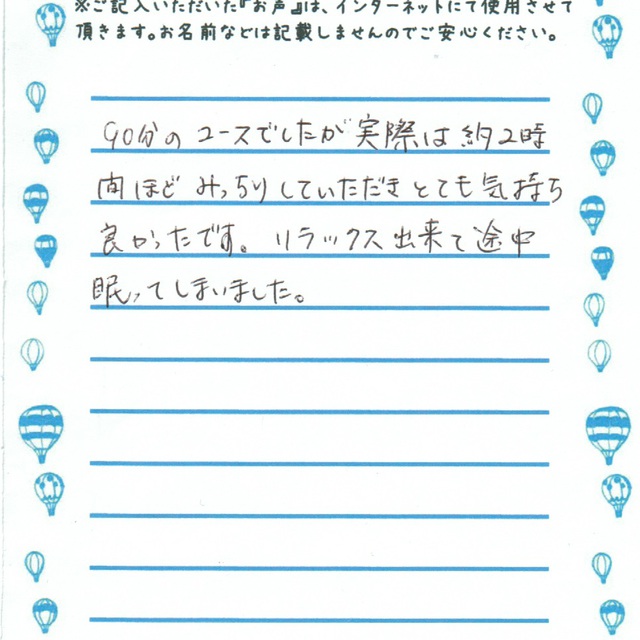 ※ご記入いただいた『お声』は、インターネットにて使用させて
頂きます。お名前などは記載しませんのでご安心ください。
90分のコースでしたが実際は約2時
間ほどみっちりしていただきとても気持ち
良かったです。リラックス出来て途中
眠ってしまいました。